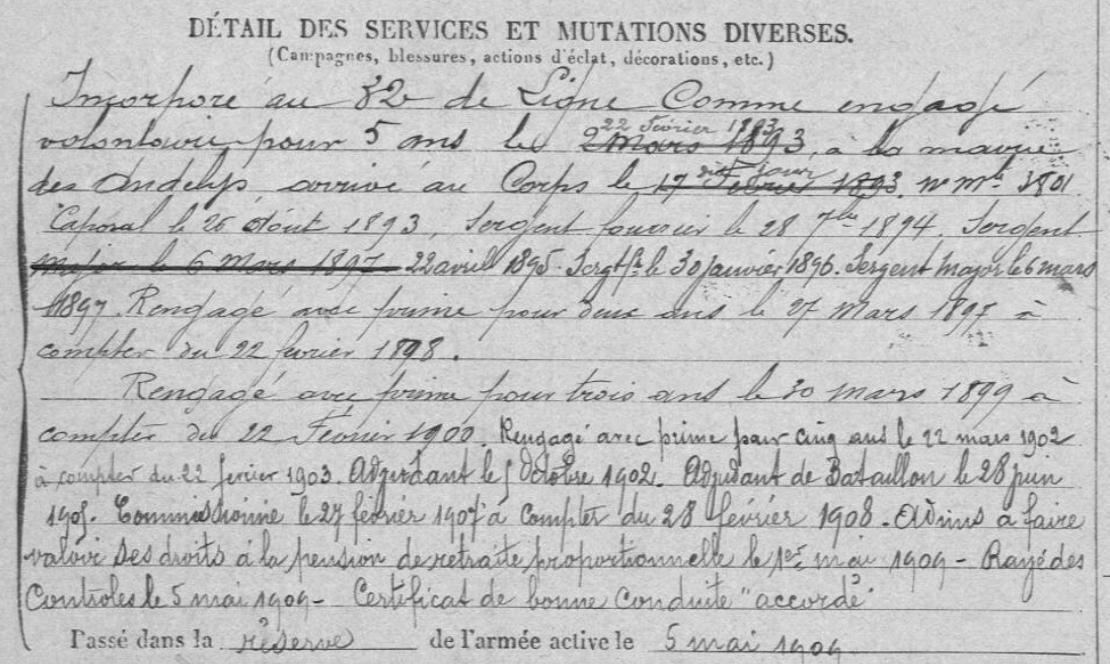 DÉTAIL DES SERVICES ET MUTATIONS DIVERSES.
(Campagnes, blessures, actions d'éclat, décorations, etc.)
Incorporé au 82e de Ligne Comme engagé
22 Février 1893
volontaire pour 5 ans le 2 Mars 1893, à la mairie
dit jour
des Andelys arrivé au Corps le 17 Février 1893. n° mle 3801
Caporal le 26 Août 1893, Sergent fourrier le 28 7bre 1894. Sergent
Major le 6 Mars 1897 22 avril 1895. Sergt fr le 30 Janvier 1896. Sergent Major le 6 mars
1897. Rengagé avec prime pour deux ans le 27 Mars 1897 à
compter du 22 février 1898.
Rengagé avec prime pour trois ans le 30 mars 1899 à
compter du 22 Février 1900. Rengagé avec prime pour cinq ans le 22 mars 1902
à compter du 22 février 1903. Adjudant le 5 Octobre 1902. Adjudant de Bataillon le 28 juin
1905. Commissionné le 27 février 1907 à compter du 28 février 1908. Admis à faire
valoir ses droits à la pension de retraite proportionnelle le 1er mai 1909 - Rayé des
Controles le 5 mai 1909 - Certificat de bonne conduite "accordé"
Passé dans la réserve de l'armée active le 5 mai 1909